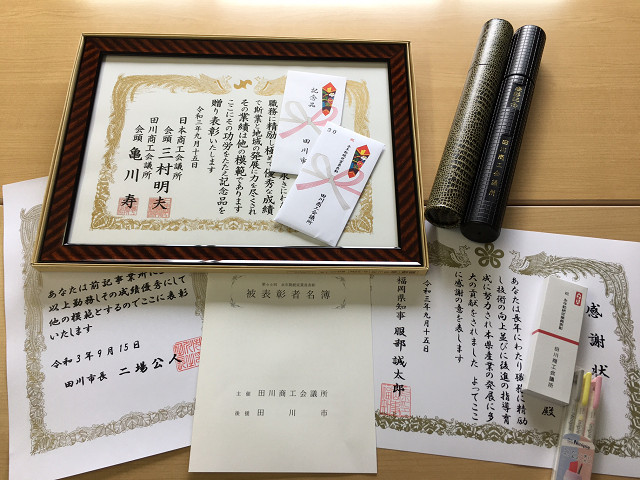 職務に精励し極めて優秀な成績
で斯業と地域の発展に力を尽くされ
その業績は他の模範であります
ここにその功労をたたえ記念品を
贈り表彰いたします
令和三年九月十五日
日本商工会議所
会頭 三村明夫
田川商工会議所
会頭 亀川寿
記念品
田川市
田川商工会議所
あなたは前記事業所に
以上勤務しその成績優秀にして
他の模範とするのでここに表彰
いたします
令和3年9月15日
田川市長 二場公人
被表彰者名簿
主催 田川商工会議所
後援 田川市
感謝状
殿
あなたは長年にわたり職務に精励
し技術の向上並びに後進の指導育
成に努力され本県産業の発展に多
大の貢献をされました よってここ
に感謝の意を表します
令和三年九月十五日
福岡県知事 服部誠太郎
田川商工会議所